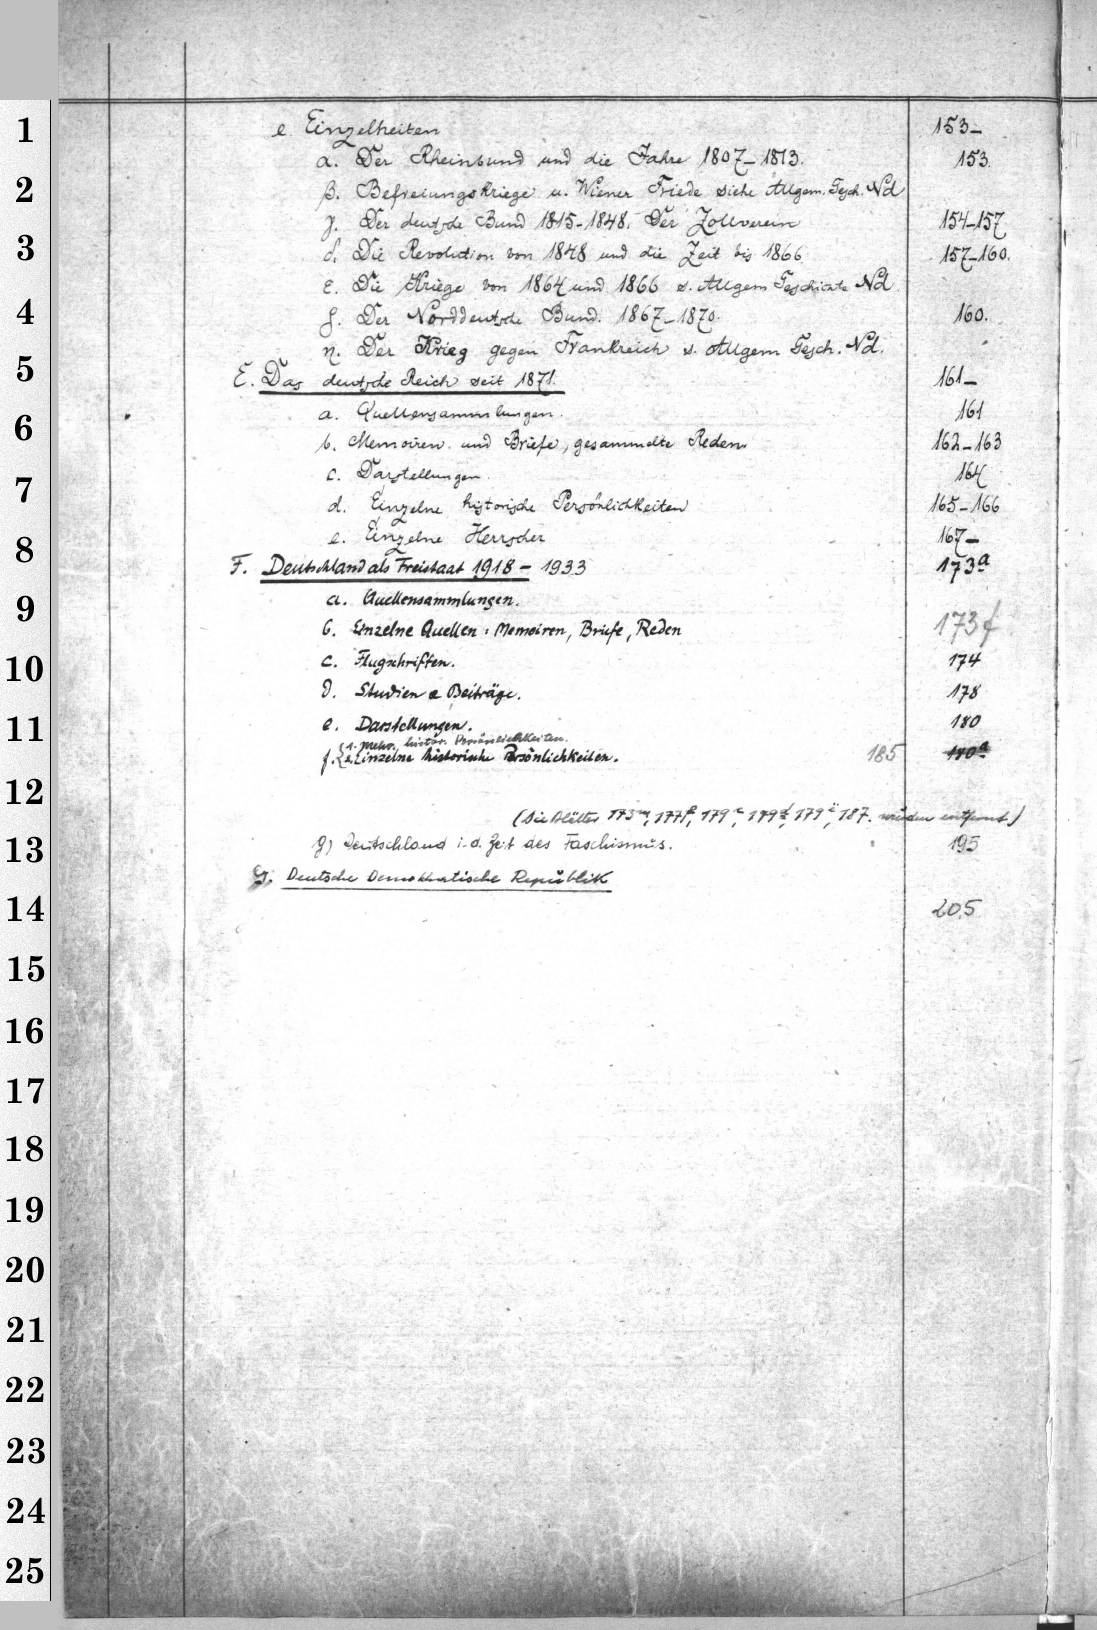 1
e. Einzelheiten 153-
α. Der Rheinbund und die Jahre 1807-1813. 153.
2
β. Befreiungskriege u. Wiener Friede siehe Allgem. Gesch. Nd
γ. Der deutsche Bund 1815-1848. Der Zollverein 154-157
3
δ. Die Revolution von 1848 und die Zeit bis 1866. 157-160.
ε. Die Kriege von 1864 und 1866 s. Allgem Geschichte Nd
4
ζ. Der Norddeutsche Bund. 1867-1870. 160.
η. Der Krieg gegen Frankreich s. Allgem Gesch. Nd.
5
E. Das deutsche Reich seit 1871. 161-
a. Quellensammlungen. 161
6
b. Memoiren und Briefe, gesammelte Reden. 162-163
c. Darstellungen. 164
7
d. Einzelne historische Persönlichkeiten 165-166
e. Einzelne Herrscher 167-
8
F. Deutschland als Freistaat 1918-1933 173a
a. Quellensammlungen.
9
b. Einzelne Quellen: Memoiren, Briefe, Reden 173f
10
c. Flugschriften. 174
d. Studien & Beiträge. 178
11
e. Darstellungen. 180
1. Mehr. histor. Persönlichkeiten.
f. 2. Einzelne historische Persönlichkeiten. 185 180a
12
(Die Blätter 173m, 177f, 179c, 179d, 179i, 187. wurden entfernt)
13
g) Deutschland i. d. Zeit des Faschismus. 195
G. Deutsche Demokratische Republik
14
205
15
16
17
18
19
20
21
22
23
24
25